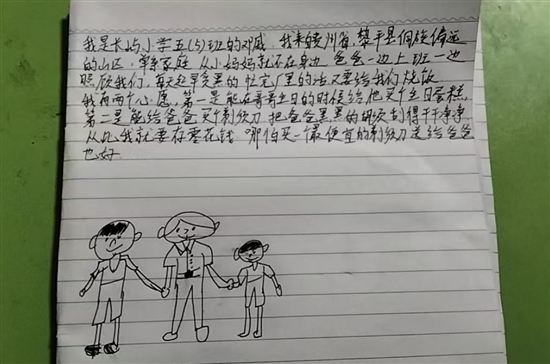 我是长屿小学五(5)班的邓威,我来自贵州省,黎平县侗族偏远
的山区,单亲家庭,从小妈妈就不在身边,爸爸一边上班一边
照顾我们,每天起早贪黑的忙完厂里的活又要给我们烧饭
我有两个心愿,第一是能在哥哥生日的时候给他买个生日蛋糕,
第二是能给爸爸买个剃须刀,把爸爸黑黑的胡须刮得干干净净
从此我就要存零花钱,哪怕买一个最便宜的剃须刀送给爸爸
也好